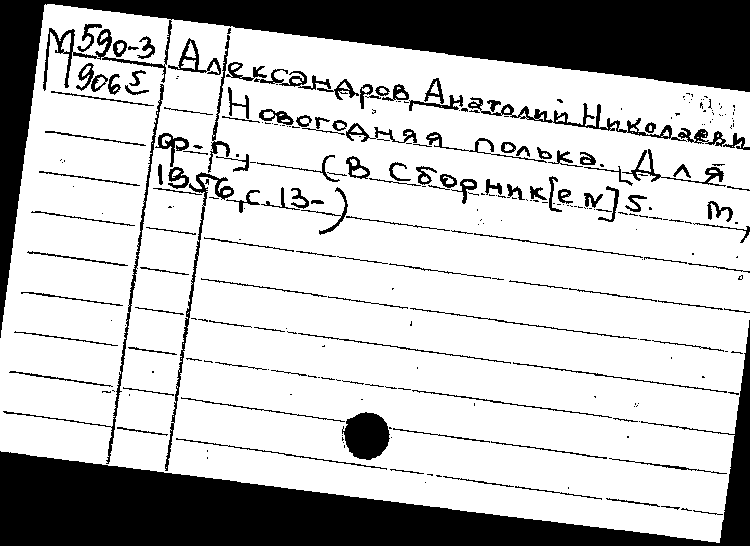 М 590-3
906 5
Александров, Анатолий Николаеви
Новогодняя полька. [Для
ф-п.]   (В Сборник[е N] 5.   М.,
1956, с. 13-)